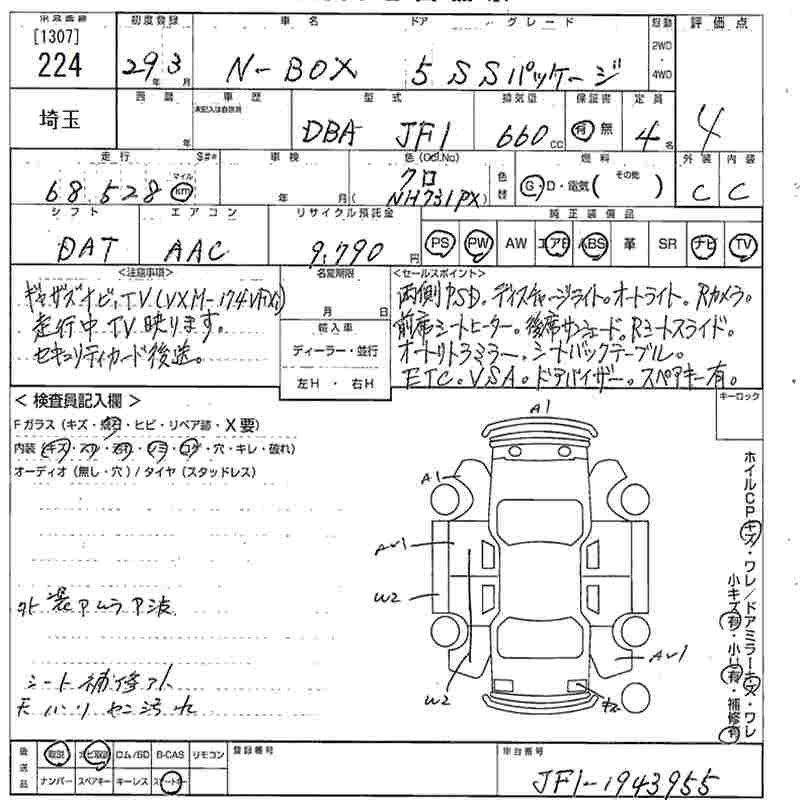 [1307]
224
初度登録
29年 3月
車名
N-BOX
ドア
5
グレード
SSパッケージ
駆動
2WD
4WD
評価点
4
埼玉
西暦
年
車歴
未記入は自家用
型式
DBA JF1
排気量
660cc
保証書
有 無
定員
4名
走行
68,528
S#=
マイル
km
車検
年 月
色(Col.No)
クロ
(NH731PX)
色替
燃料
G・D・電気( その他 )
外装
C
内装
C
シフト
DAT
エアコン
AAC
リサイクル預託金
9,790円
純正装備品
PS PW AW エアB ABS 革 SR ナビ TV
<注意事項>
ギャザズナビ、TV(VXM-174VFXi)
走行中TV映ります。
セキュリティカード後送。
名変期限
月 日
輸入車
ディーラー・並行
左H ・ 右H
<セールスポイント>
両側PSD。ディスチャージライト。オートライト。Rカメラ。
前席シートヒーター。後席サンシェード。Rシートスライド。
オートリトラミラー。シートバックテーブル。
ETC。VSA。ドアバイザー。スペアキー有。
キーロック
<検査員記入欄>
Fガラス(キズ・飛石・ヒビ・リペア跡・X要)
内装(キズ・スリ・汚れ・シミ・コゲ・穴・キレ・破れ)
オーディオ(無し・穴)/タイヤ(スタッドレス)
外装アムラア波
シート補修アト
天ハリヤニ汚れ
A1
A1
AU1
W2
W2
AU1
キズ
ホイルCPキズ・ワレ/ドアミラーキズ・ワレ
小キズ有・小凹有・補修有
後送品
取説 ナビ取説 ロム/SD B-CAS リモコン
ナンバー スペアキー キーレス スマートキー
登録番号
車台番号
JF1-1943955